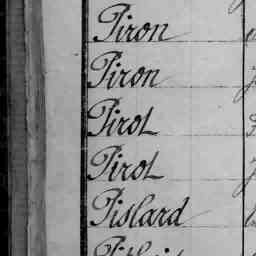 Piron
Piron
Pirot
Pirot
Pislard